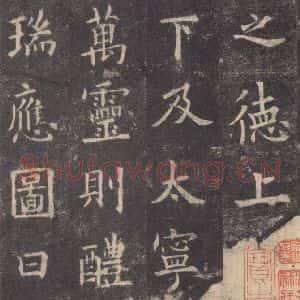 之德上
下及太寧
萬靈則醴
瑞應圖曰
Shufawang.CN